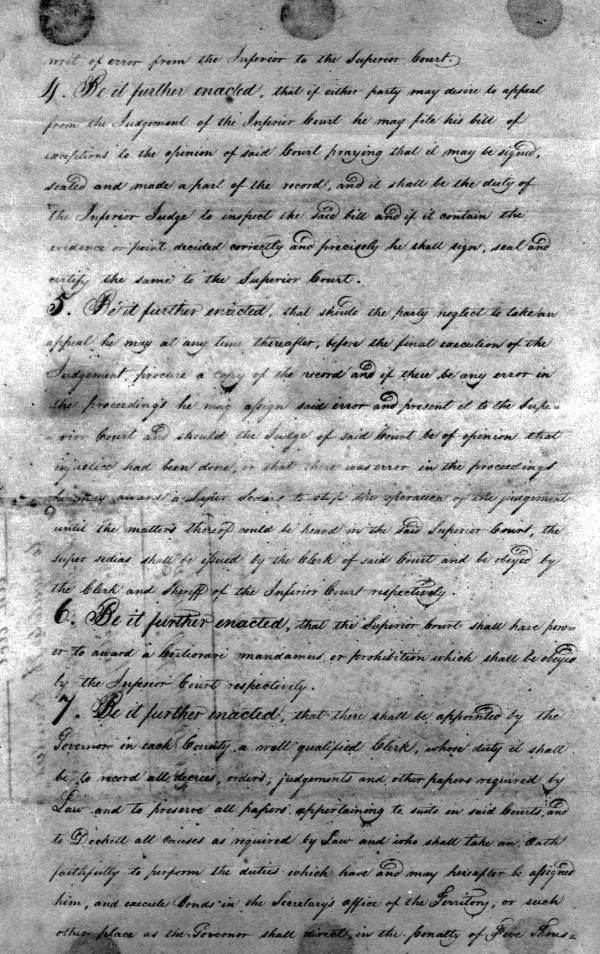 writ of error from the Inferior to the Superior Court.
4. Be it further enacted, that if either party may desire to appeal
from the Judgement of the Inferior Court he may file his bill of
exceptions to the opinion of said Court praying that it may be signed,
sealed and made a part of the record, and it shall be the duty of
the Inferior Judge to inspect the said bill and if it contain the
evidence or point decided correctly and precisely he shall sign, seal and
certify the same to the Superior Court.
5. Be it further enacted, that should the party neglect to take an
appeal he may at any time thereafter, before the final execution of the
Judgement, procure a copy of the record and if there be any error in
the proceedings he may assign said error and present it to the Supe-
-rior Court and should the Judge of said Court be of opinion that
injustice had been done, or that there was error in the proceedings
he may award a Super Sedeas to stop the operation of the judgement
until the matters thereof could be heard in the said Superior Court, the
super sedias shall be issued by the Clerk of said Court and be obeyed by
the Clerk and Sheriff of the Inferior Court respectively.
6. Be it further enacted, that the Superior Court shall have pow-
er to award a Certiorari mandamus, or prohibition which shall be obeyed
by the Inferior Court respectively.
7. Be it further enacted, that there shall be appointed by the
Governor in each County a well qualified Clerk, whose duty it shall
be, to record all decrees, orders, judgements and other papers required by
Law and to preserve all papers appertaining to suits in said Courts, and
to Dockett all causes as required by Law and who shall take an Oath
faithfully to perform the duties which have and may hereafter be assigned
him, and execute bonds in the Secretary's office of the Territory, or such
other place as the Governor shall direct, in the penalty of Five Thous-